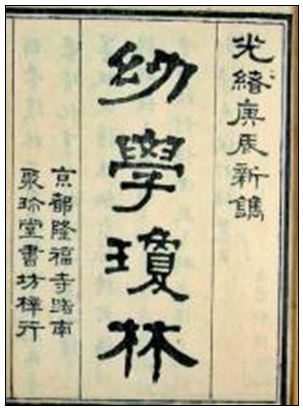 光緖庚辰新鐫
幼學瓊林
京都隆福寺路南
聚珍堂書坊梓行